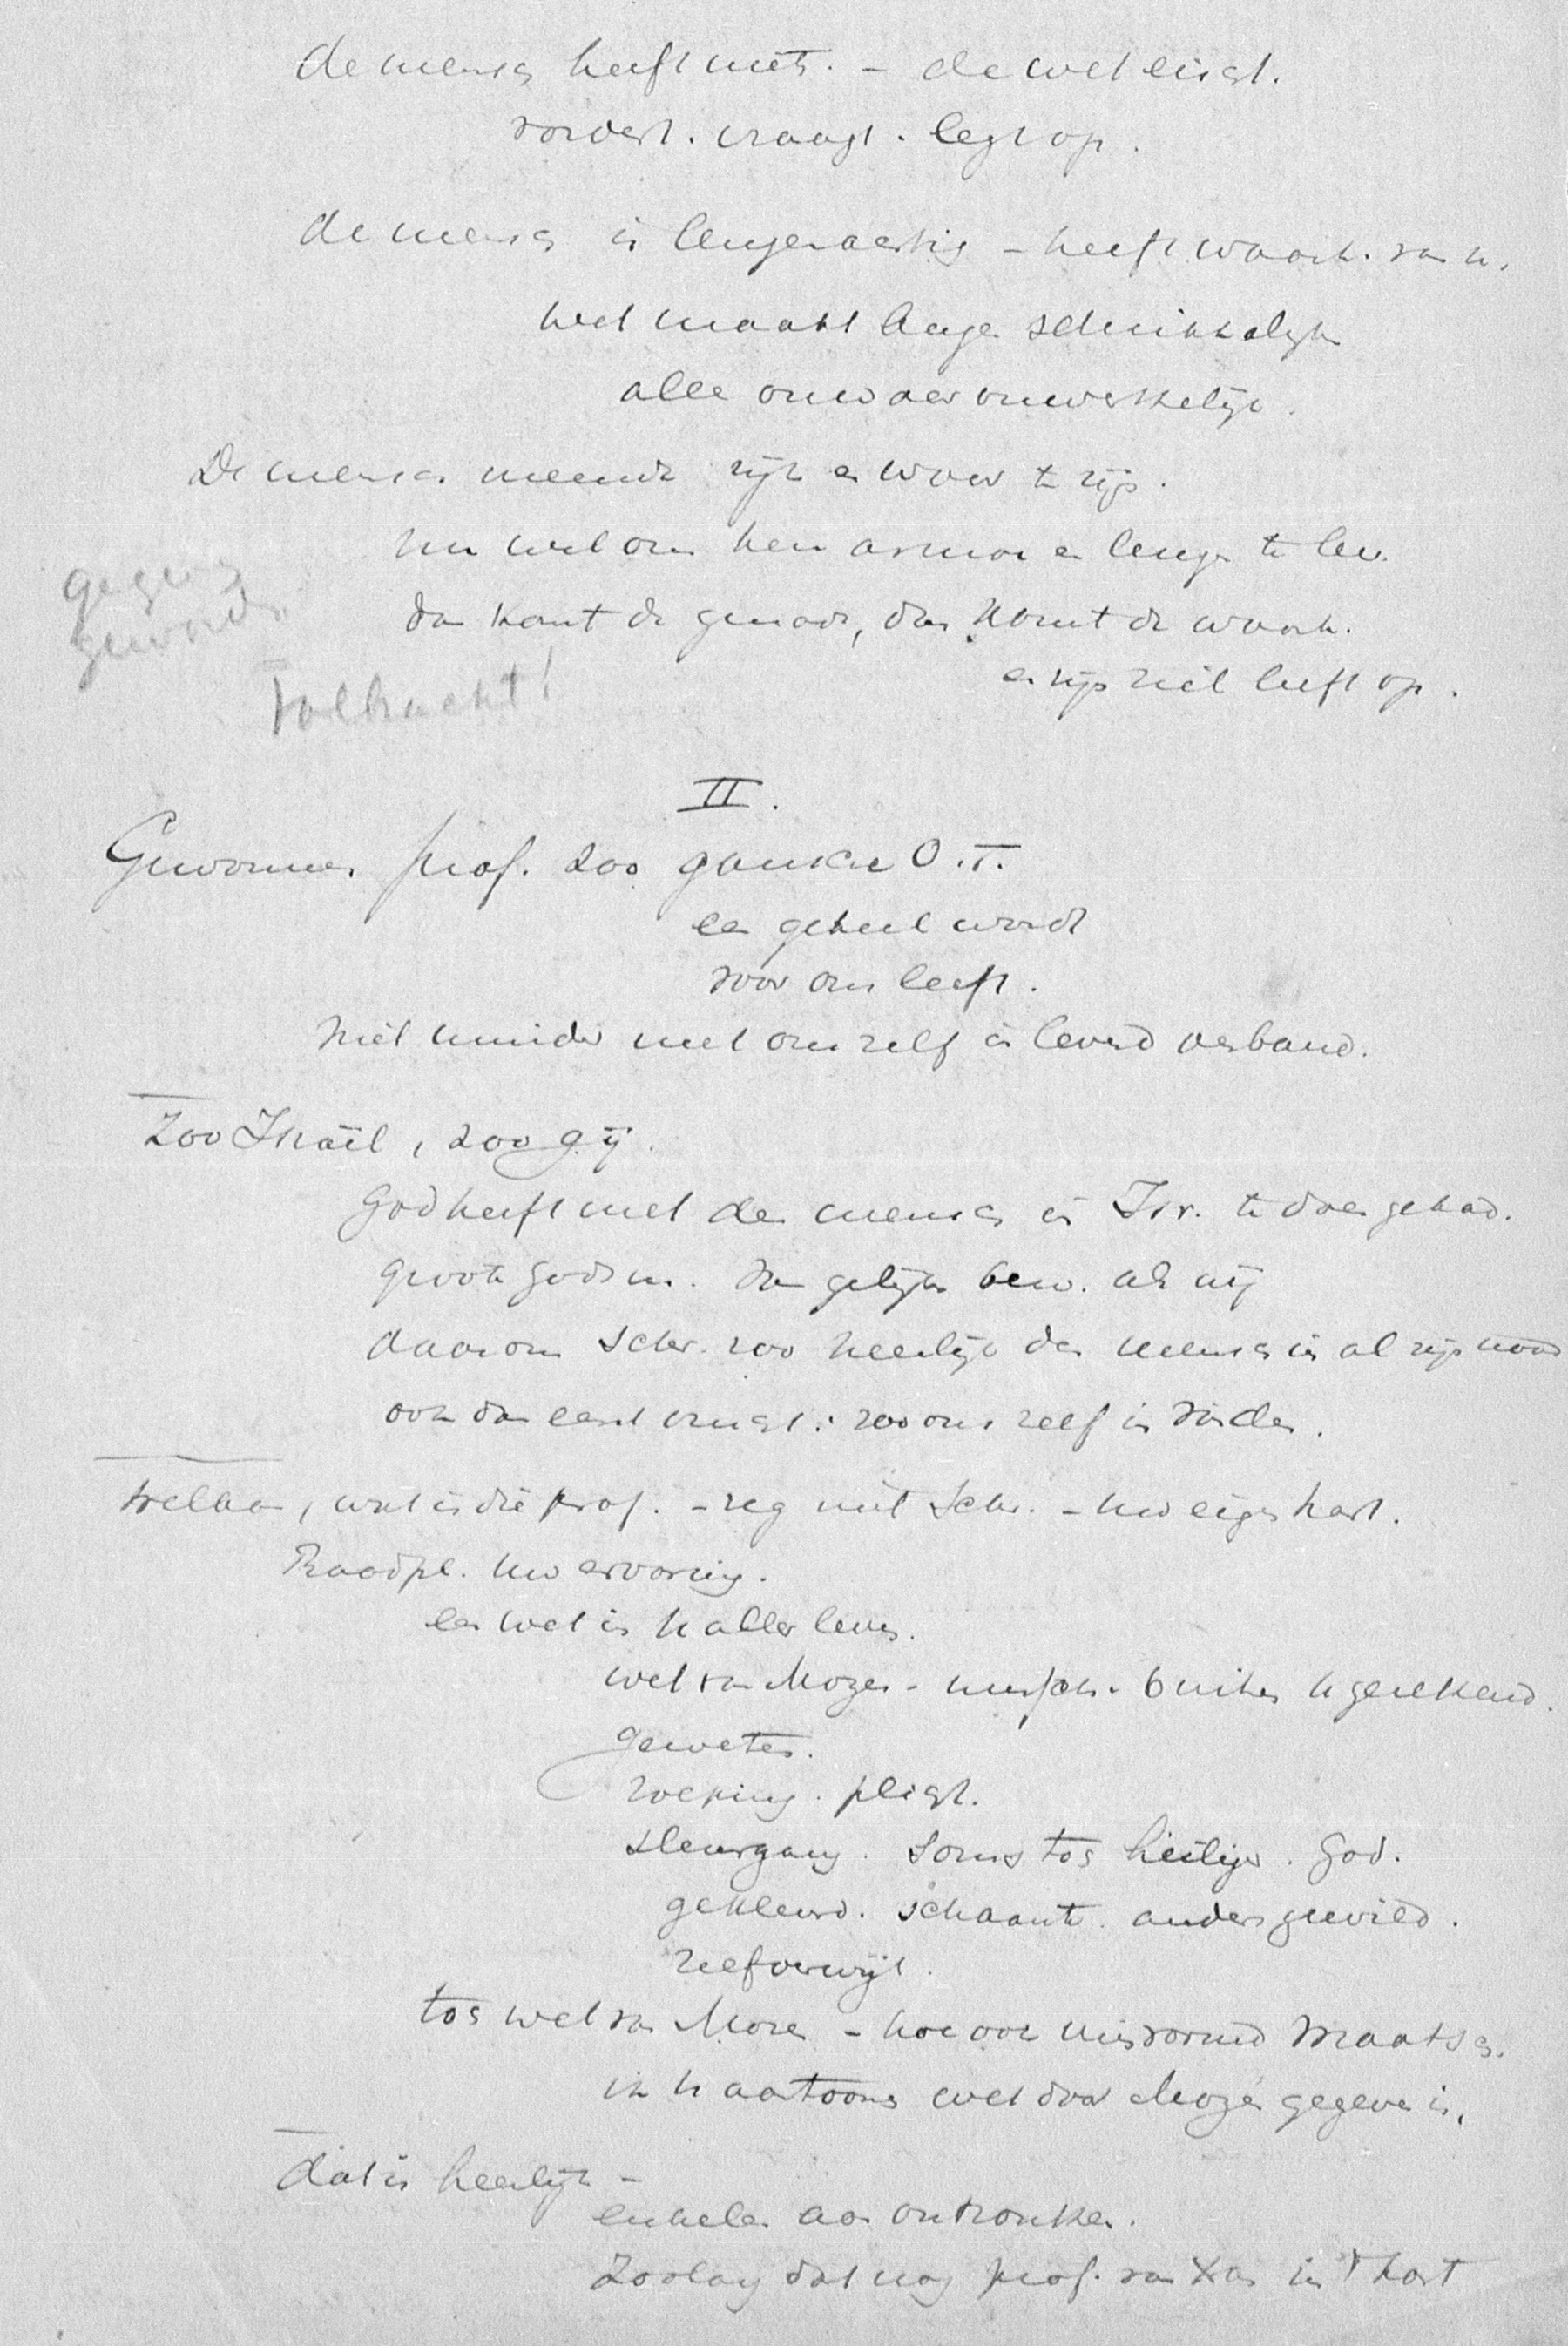 de mensch heeft niets. - de wet eischt.
vordert. vraagt. legt op.
de mensch is leugenachtig - heeft waarh. van n.
wet maakt leugen schrikkelijk
alle onwaar onwerkelijk.
De mensch meende rijk en waar te zijn.
nu wet om hem armoe en leugen te
dan komt de genade, dan komt de waarh.
en zijn ziel leeft op.
gegeven
geworden
Volbracht!
II.
Gewonnen prof. zoo gansche O.T.
een geheel wordt
voor ons leeft.
niet minder met ons zelf in levend verband.
Zoo Israël, zoo gij.
God heeft met den mensch in Isr. te doen gehad.
groote Godsm. van gelijke bew. als wij
daarom Schr. zoo heerlijk den mensch in al zijn nood
ook dan eerst vrucht: zoo ons zelf in vinden.
Welaan, wat is die prof. - zeg niet Schr. - uw eigen hart.
Raadpl. uw ervaring.
een wet in h aller leven.
wet van Mozes - buiten h gerekend.
geweten.
roeping. plicht.
sleurgang. soms toch heiliger. God.
gekleurd. schaamte. anders gewild.
zelfverwijt.
toch wet van Mozes - hoe ook misvormd maatsch.
ik h aantoone wet door Mozes gegeven is.
dat is heerlijk -
enkelen aan ontzonken.
Zoolang dat nog prof. van Xus in 't hart